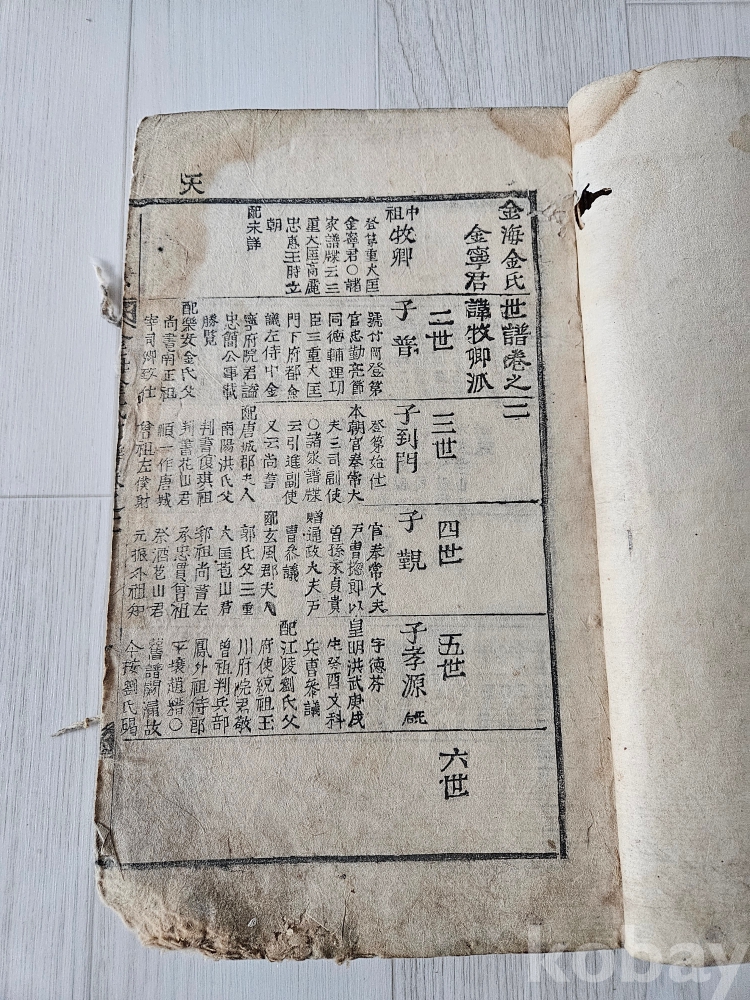 天
金海金氏世譜卷之二
金寧君諱牧卿派
中祖牧卿
登第重大匡
金寧君○諸
家譜牒云三
重大匡高麗
忠惠王時立
朝
配未詳
二世
子普
號竹岡登第
官忠勤亮節
同德輔理功
臣三重大匡
門下府都僉
議左侍中金
寧府院君謚
忠簡公事載
勝覽
配樂安金氏父
尚書南正祖
宰司卿致仕
三世
子到門
登第始仕
本朝官奉常大
夫三司副使
○諸家譜牒
云引進副使
又云尚書
配唐城郡夫人
南陽洪氏父
判書復琪祖
判書花山君
順一作唐城
曾祖左僕射
四世
子觀
官奉常大夫
戶曹摠郎以
曾孫永貞貴
贈通政大夫戶
曹參議
配玄風郡夫人
郭氏父三重
大匡苞山君
郭祖尚書左
承忠貫曾祖
祭酒苞山君
元振外祖知
五世
子孝源
字德芬
皇明洪武庚戌
生癸酉文科
兵曹參議
配江陵劉氏父
府使統祖王
川府院君敬
曾祖判兵部
鳳外祖侍郎
平壤趙精○
舊譜闕漏故
今按劉氏碣
六世
kobay